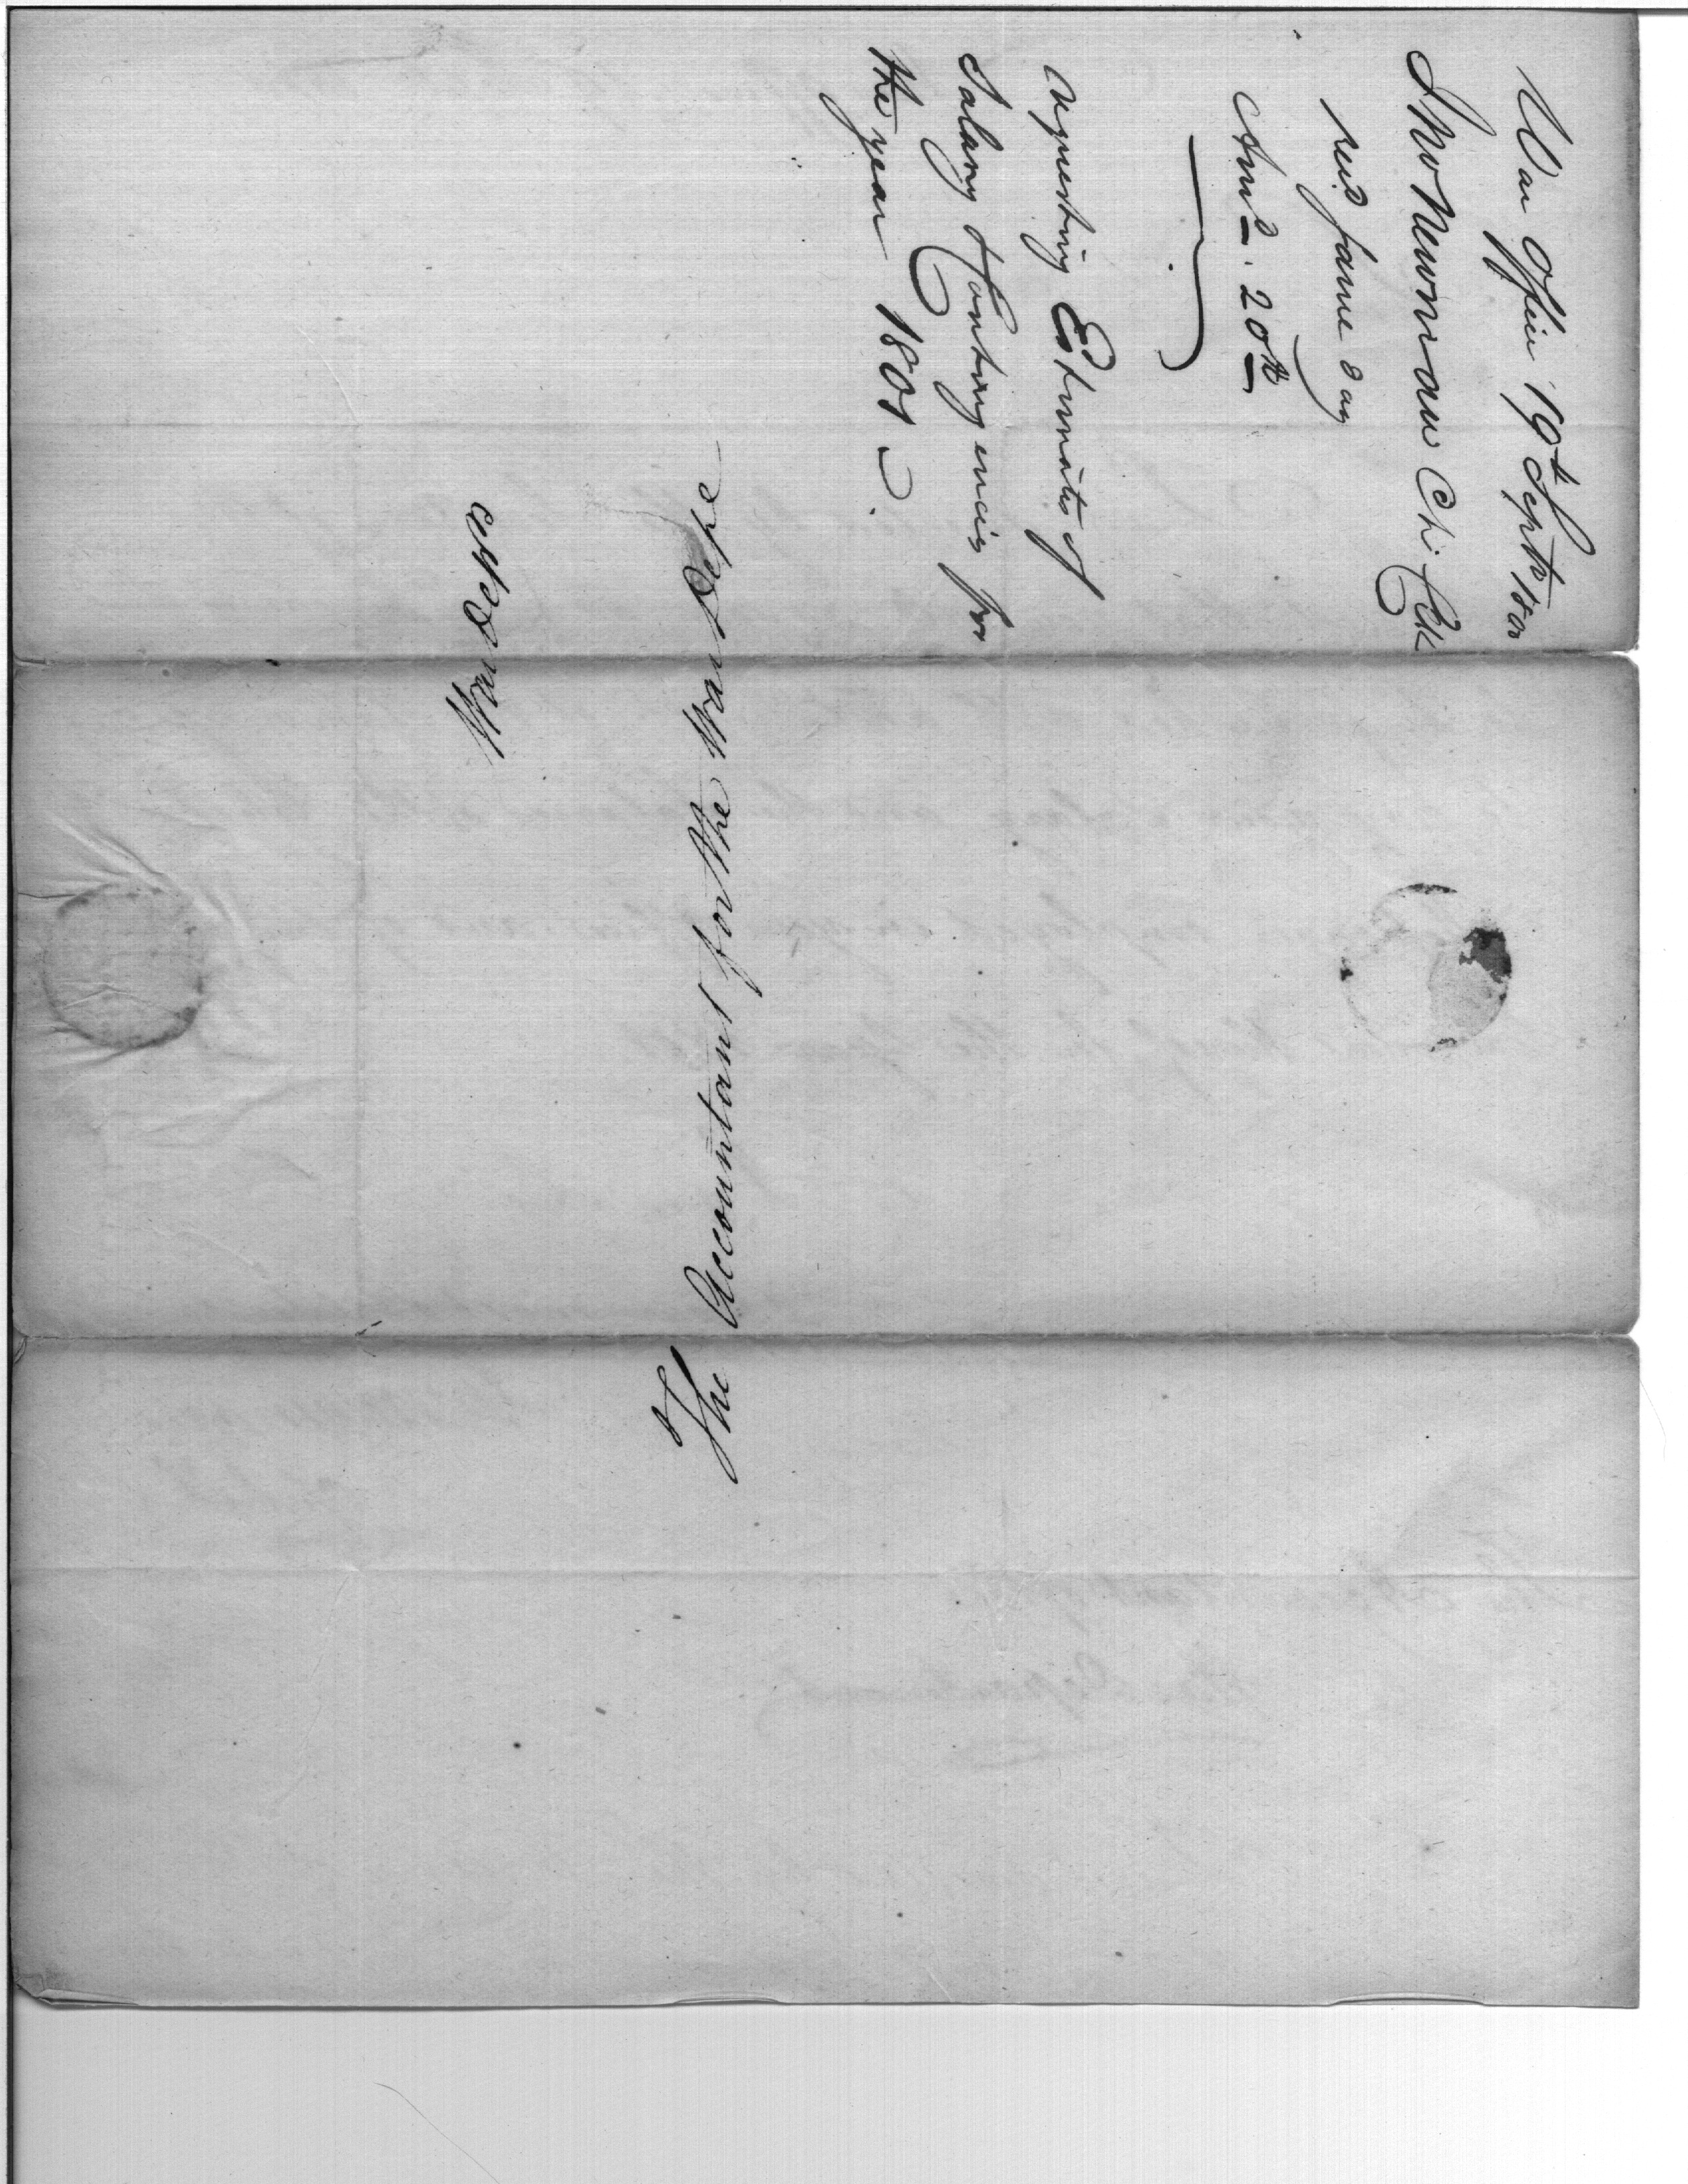 War Office 19th Septr 1800
Jno Newman Chf Clk
recd same day
Ansd. 20th
requesting Estimate of
Salary & Contingencies for
the year 1801.
War Dept
The Accountant for the War Dept